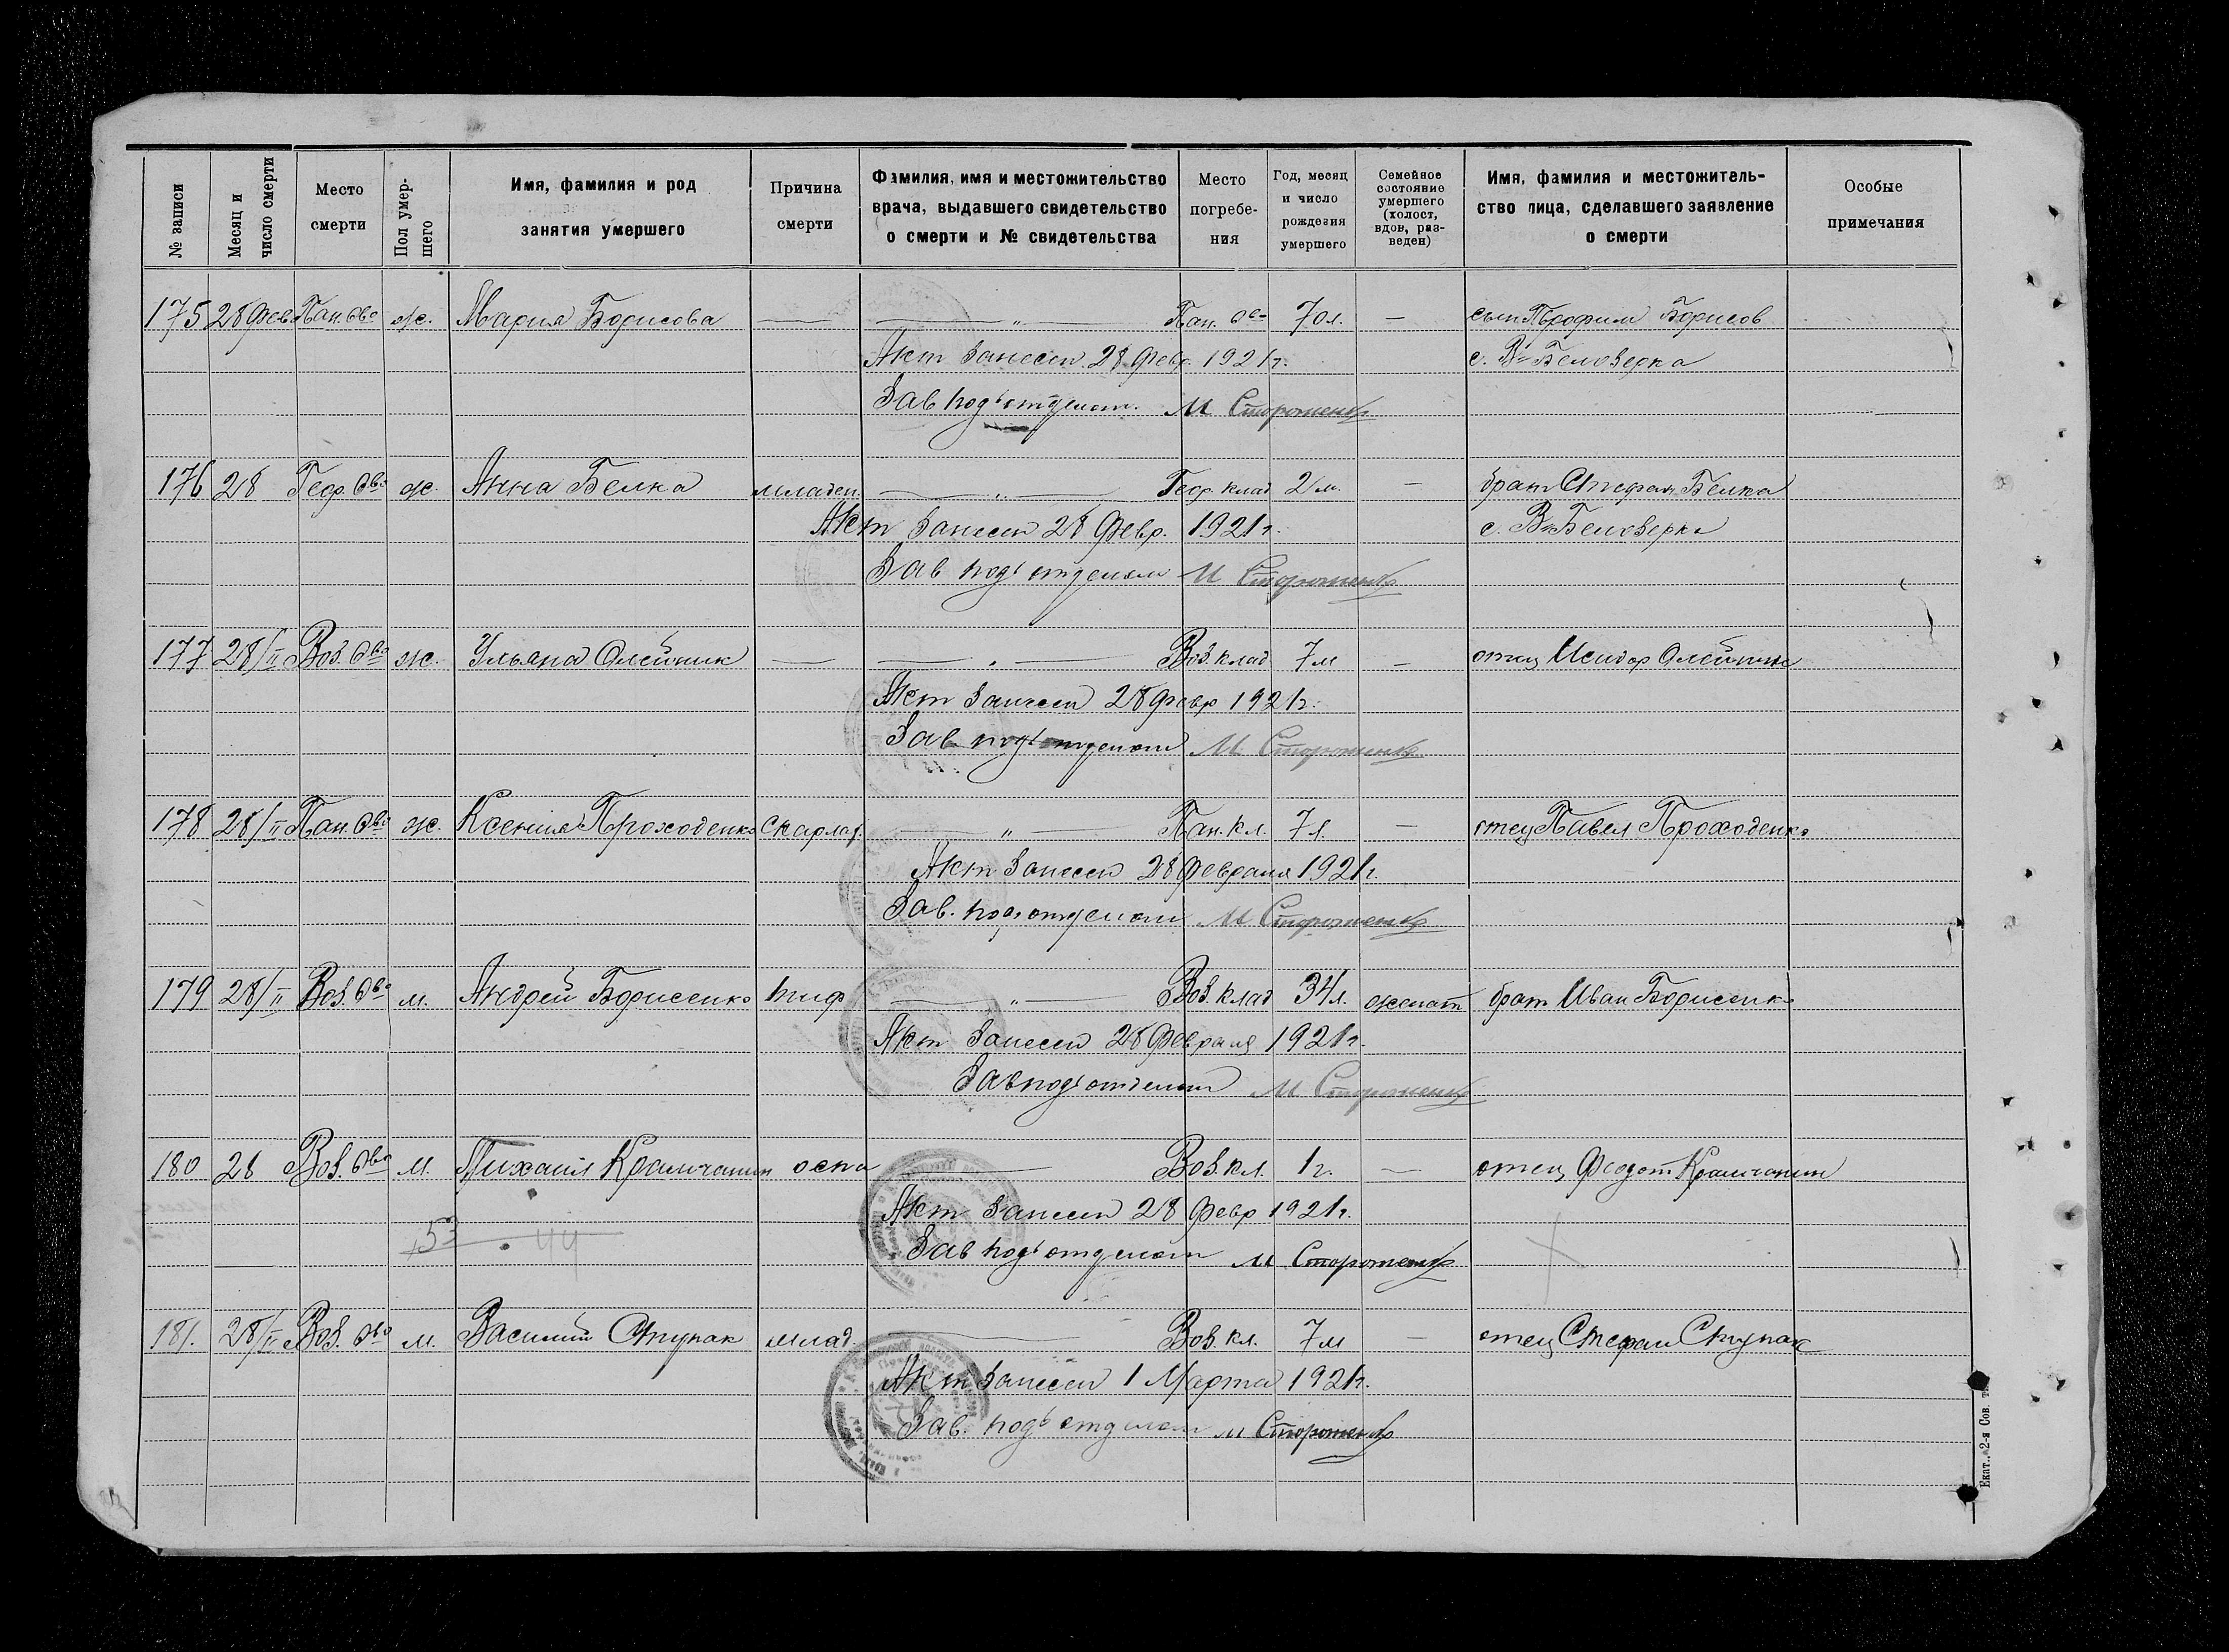 № записи
Месяц и число смерти
Место смерти
Пол умер-шего
Имя, фамилия и род занятия умершего
Причина смерти
Фамилия, имя и местожительство врача, выдавшего свидетельство о смерти и № свидетельства
Место погребе-ния
Год, месяц и число рождения умершего
Семейное состояние умершего (холост, вдов, раз-веден)
Имя, фамилия и местожитель-ство лица, сделавшего заявление о смерти
Особые примечания
175 28 Фев Пан. Ово ж. Мария Борисова — — " — Пан. Ос- 70 л. — сын Трофим Борисов
Акт Занесен 28 Февр. 1921 г. с. В-Белозерка
Зав подъотделом М Стороженко
176 28 Геор. Ово ж. Анна Белка младен. — " — Геор. клад 2 м. — брат Стефан Белка
Акт Занесен 28 Февр. 1921 г. с. В-Белозерка
Зав подъотделом М Стороженко
177 28/II Воз. Ово ж. Ульяна Олейник — — " — Воз. клад 7 м — отец Исидор Олейник
Акт Занесен 28 февр 1921 г.
Зав подъотделом М Стороженко
178 28/II Пан. Ово ж. Ксения Проходенко скарлат. — " — Пан. Кл. 7 л. — отец Павел Проходенко
Акт Занесен 28 Февраля 1921 г.
Зав. подъотделом М Стороженко
179 28/II Воз. Ово м. Андрей Борисенко тиф — " — Воз. клад 34 л. женат брат Иван Борисенко
Акт Занесен 28 Февраля 1921 г.
Зав подъотделом М Стороженко
180 28 Воз. Ово м. Михаил Крамчанин оспа — Воз. кл. 1 г. — отец Федот Крамчанин
Акт Занесен 28 Февр 1921 г.
53 44
Зав подъотделом М Стороженко
181. 28/II Воз. Ово м. Василий Ступак млад. — Воз. кл. 7 м — отец Стефан Ступак
Акт Занесен 1 Марта 1921 г.
Зав. подъотделом М Стороженко
Екат., 2-я Сов. т.